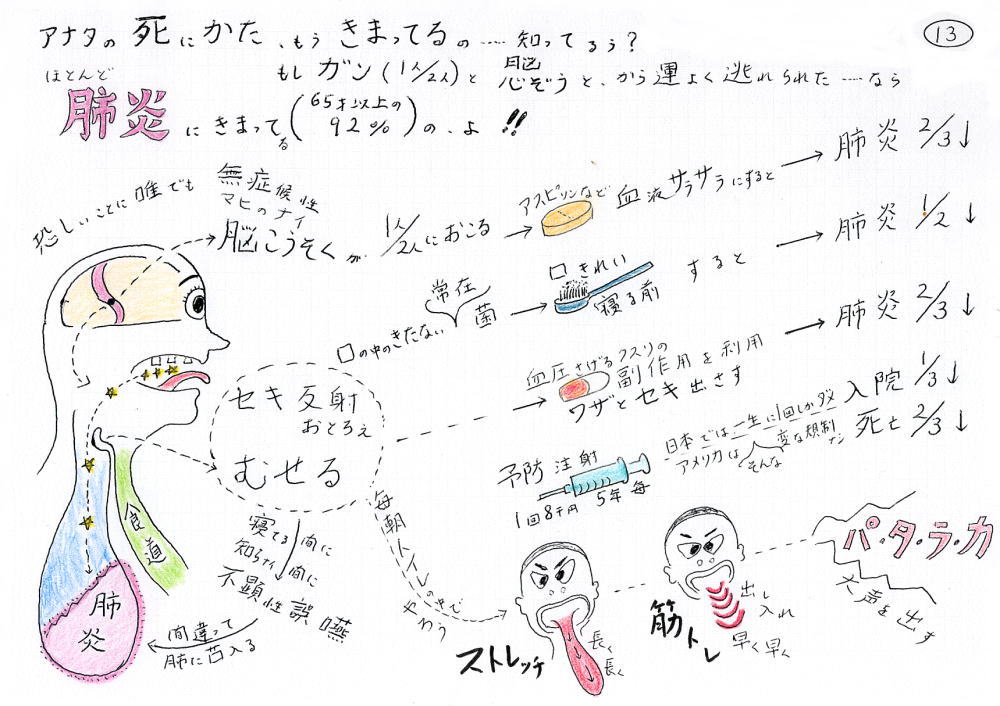 アナタの死にかた、もうきまってるの……知ってるぅ?
13
もしガン(1人/2人)と脳心ぞうと、から運よく逃れられた……なら
ほとんど
肺炎にきまってる(65才以上の92%)の、よ!!
恐しいことに誰でも
無症候性
マヒのナイ
脳こうそくが1人/2人におこる
アスピリンなど
血液サラサラにすると
肺炎2/3↓
口の中のきたない
常在
菌
口きれい
寝る前
すると
肺炎1/2↓
セキ反射
おとろえ
むせる
血圧さげるクスリの
副作用を利用
ワザとセキ出さす
肺炎2/3↓
予防注射
1回8千円
5年毎
日本では一生に1回しかダメ
アメリカは
そんな
変な規制
ナシ
入院1/3↓
死亡2/3↓
食道
肺炎
寝てる間に
知らナイ間に
不顕性誤嚥
間違って
肺に
入る
毎朝トイレの中で
やろう
ストレッチ
長く
長く
筋トレ
出し
入れ
早く早く
パ・タ・ラ・カ
大声を出す